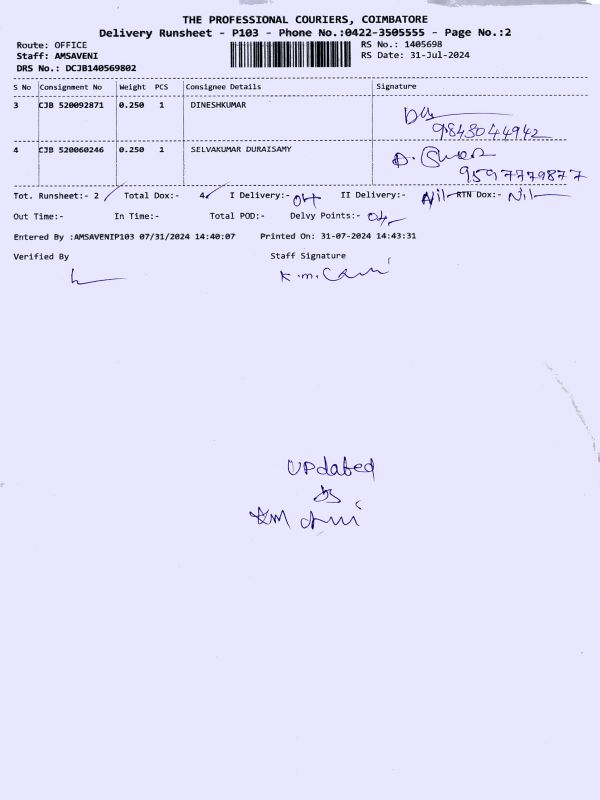 THE PROFESSIONAL COURIERS, COIMBATORE
Delivery Runsheet - P103 - Phone No.:0422-3505555 - Page No.:2
Route: OFFICE RS No.: 1405698
Staff: AMSAVENI RS Date: 31-Jul-2024
DRS No.: DCJB140569802
S No Consignment No Weight PCS Consignee Details Signature
3 CJB 520092871 0.250 1 DINESHKUMAR
9843044942
4 CJB 520060246 0.250 1 SELVAKUMAR DURAISAMY
9597779877
Tot. Runsheet:- 2 Total Dox:- 4 I Delivery:- 04 II Delivery:- Nil RTN Dox:- Nil
Out Time:- In Time:- Total POD:- Delvy Points:- 04
Entered By :AMSAVENIP103 07/31/2024 14:40:07 Printed On: 31-07-2024 14:43:31
Verified By Staff Signature
UPdated